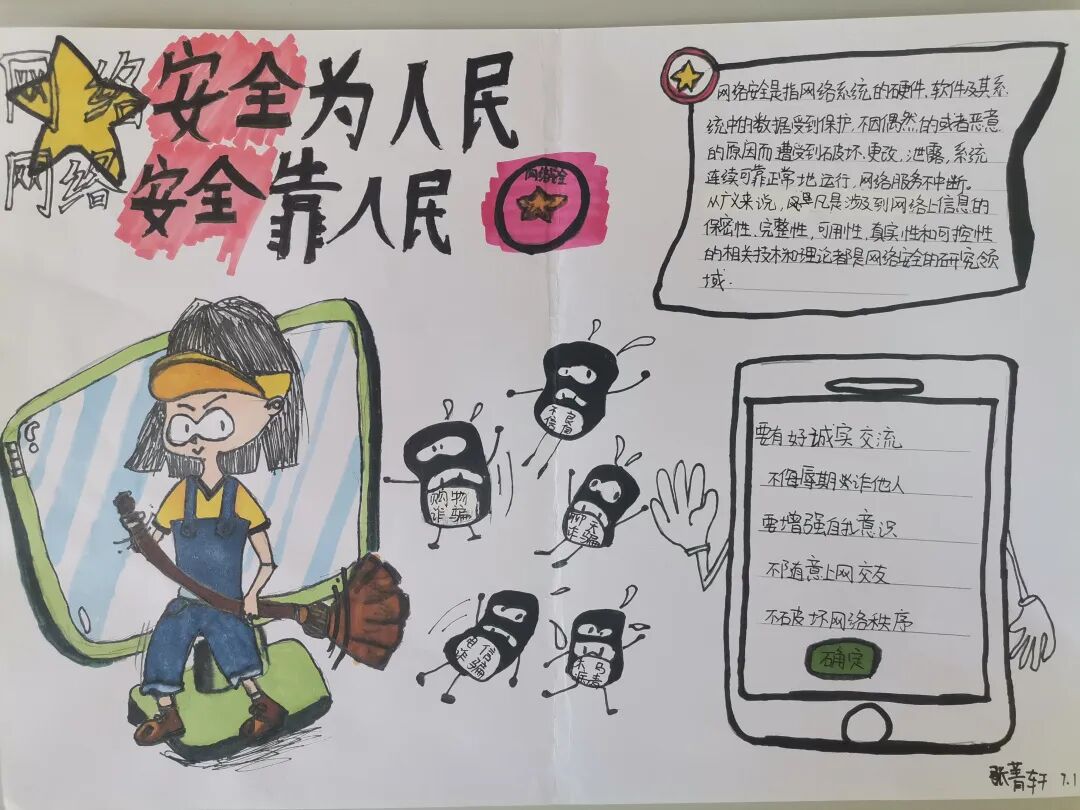 网络安全为人民
网络安全靠人民
网络安全
网络安全是指网络系统的硬件、软件及其系
统中的数据受到保护,不因偶然的或者恶意
的原因而遭受到破坏、更改、泄露,系统
连续可靠正常地运行,网络服务不中断。
从广义来说,凡是涉及到网络上信息的
保密性、完整性、可用性,真实性和可控性
的相关技术和理论者都是网络安全的研究领
域.
不良
信息
购物
诈骗
聊天
诈骗
电信
诈骗
木马
病毒
要有好诚实交流
不侮辱期诈他人
要增强自我意识
不随意上网交友
不破坏网络秩序
确定
张菁轩 7.1